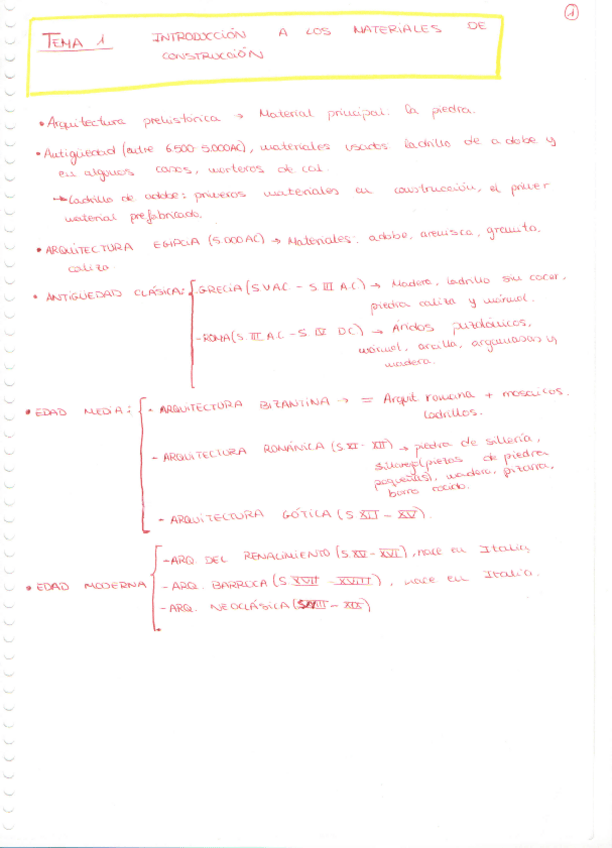 1
TEMA 1 INTRODUCCIÓN A LOS MATERIALES DE
CONSTRUCCIÓN
• Arquitectura prehistórica → Material principal: la piedra.
• Antigüedad (entre 6500-5.000AC), materiales usados: ladrillo de adobe y
en algunos casos, morteros de cal.
→ Ladrillo de adobe: primeros materiales en construcción, el primer
material prefabricado.
• ARQUITECTURA EGIPCIA (5.000AC) → Materiales: adobe, arenisca, granito,
caliza.
• ANTIGÜEDAD CLÁSICA: - GRECIA (S V AC - S III AC) → Madera, ladrillo sin cocer,
piedra caliza y mármol.
- ROMA (S. III AC - S IV DC) → Áridos puzolánicos,
mármol, arcilla, argamasas y
madera.
• EDAD MEDIA: - ARQUITECTURA BIZANTINA → = Arquit romana + mosaicos,
ladrillos.
- ARQUITECTURA ROMÁNICA (S XI - XII) → piedra de sillería,
sillarejo (piezas de piedra
pequeñas), madera, pizarra,
barro cocido.
- ARQUITECTURA GÓTICA (S XII - XV).
• EDAD MODERNA - ARQ. DEL RENACIMIENTO (S XV - XVI), nace en Italia,
- ARQ. BARROCA (S XVII - XVIII), nace en Italia.
- ARQ. NEOCLÁSICA (XVIII - XIX)